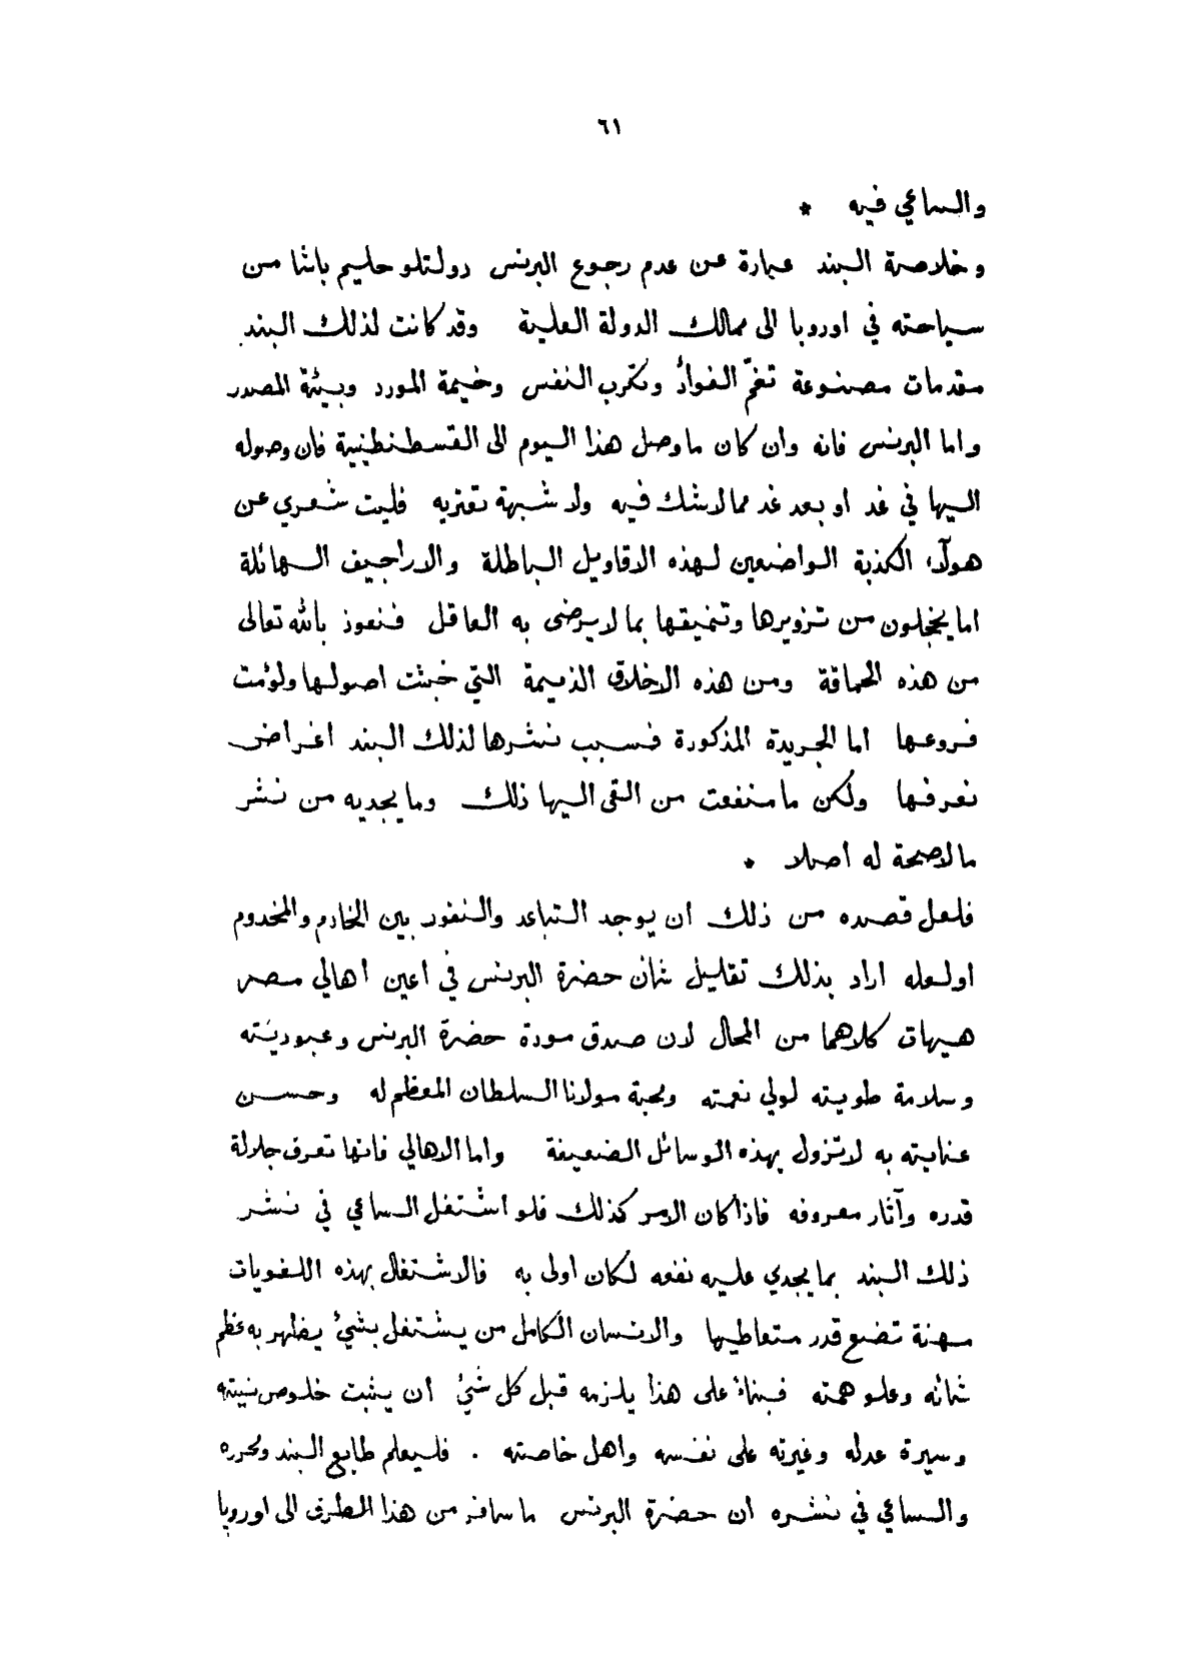 ٦١
والساعي فيه *
وخلاصة البند عبارة عن عدم رجوع البرنس دولتلو حليم باشا من
سياحته في اوروبا الى ممالك الدولة العلية وقد كانت لذلك البند
مقدمات مصنوعة تغمّ الفوأد وتكرب النفس وخيمة المورد وبيئة المصدر
واما البرنس فانه وان كان ما وصل هذا اليوم الى القسطنطينية فان وصوله
اليها في غد او بعد غد مما لاشك فيه ولا شبهة تعتريه فليت شعري عن
هولآء الكذبة الواضعين لهذه الاقاويل الباطلة والاراجيف الهائلة
اما يخجلون من تزويرها وتنميقها بما لا يرضى به العاقل فنعوذ بالله تعالى
من هذه الحماقة ومن هذه الاخلاق الذميمة التي خبثت اصولها ولؤمت
فروعها اما الجريدة المذكورة فسبب نشرها لذلك البند اغراض
نعرفها ولكن ما منفعت من القى اليها ذلك وما يجديه من نشر
مالاصحة له اصلا *
فلعل قصده من ذلك ان يوجد التباعد والنفور بين الخادم والمخدوم
اولعله اراد بذلك تقليل شان حضرة البرنس في اعين اهالي مصر
هيهات كلاهما من المحال لان صدق مودة حضرة البرنس وعبوديته
وسلامة طويته لولي نعمته ومحبة مولانا السلطان المعظم له وحسن
عنايته به لاتزول بهذه الوسائل الضعيفة واما الاهالي فانها تعرف جلالة
قدره وآثار معروفه فاذا كان الامر كذلك فلو اشتغل الساعي في نشر
ذلك البند بما يجدي عليه نفعه لكان اولى به فالاشتغال بهذه اللغويات
مهنة تضع قدر متعاطيها والانسان الكامل من يشتغل بشئ يظهر به عظم
شانه وعلو همته فبناءً على هذا يلزمه قبل كل شئ ان يثبت خلوص نيته
وسيرة عدله وغيرته على نفسه واهل خاصته . فليعلم طابع البند ومحرره
والساعي في نشره ان حضرة البرنس ما سافر من هذا الطرف الى اوروبا